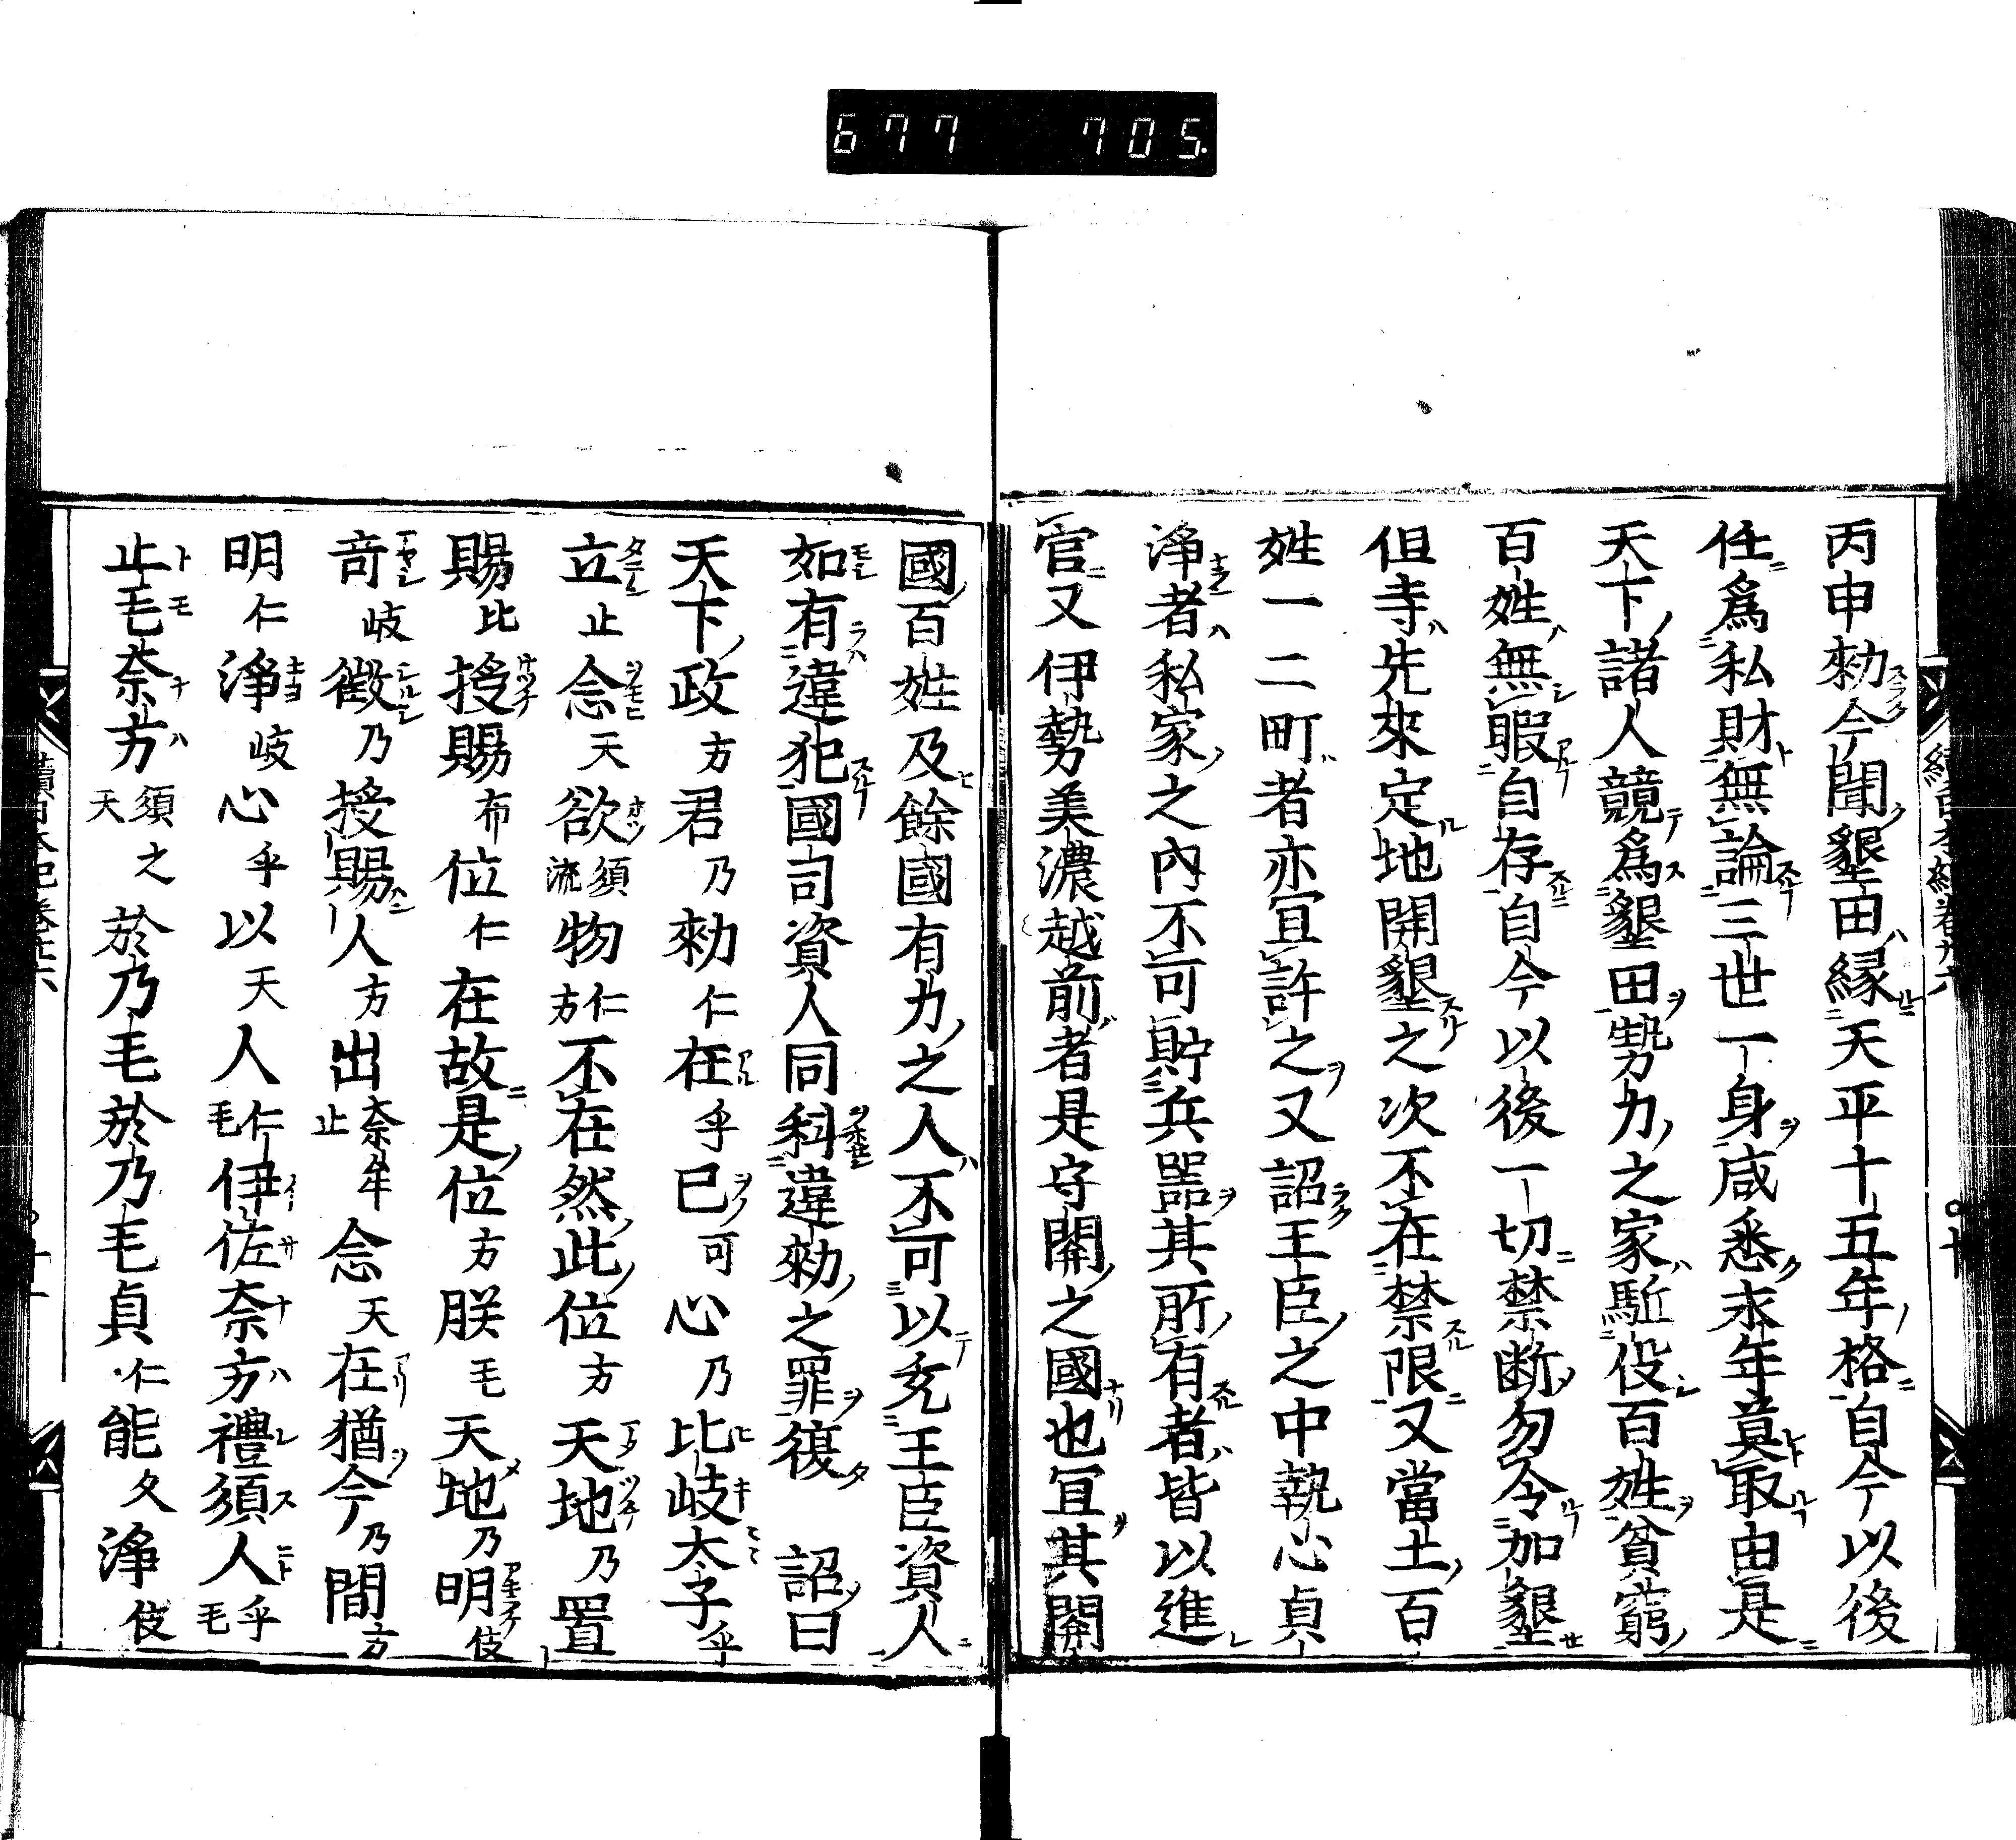 677 705
丙申勑今聞墾田縁天平十五年格自今以後
任爲私財無論三世一身咸悉永年莫取由是
天下諸人競爲墾田勢力之家駈役百姓貧窮
百姓無暇自存自今以後一切禁断勿令加墾
但寺先來定地開墾之次不在禁限又當土百
姓一二町者亦冝許之又詔王臣之中執心貞
淨者私家之內不可貯兵噐其所有者皆以進
官又伊勢美濃越前者是守關之國也冝其關
國百姓及餘國有力之人不可以充王臣資人
如有違犯國司資人同科違勑之罪復 詔曰
天下政方君乃勑仁在乎己可心乃比岐太子乎
立止念天欲須流物仁方不在然此位方天地乃置
賜比授賜布位仁在故是位方朕毛天地乃明伎
奇岐徵乃授賜人方出奈牟止念天在猶今乃間方
明仁淨岐心乎以天人仁毛伊佐奈方禮須人乎毛
止毛奈方須天之於乃毛於乃毛貞仁能久淨伎